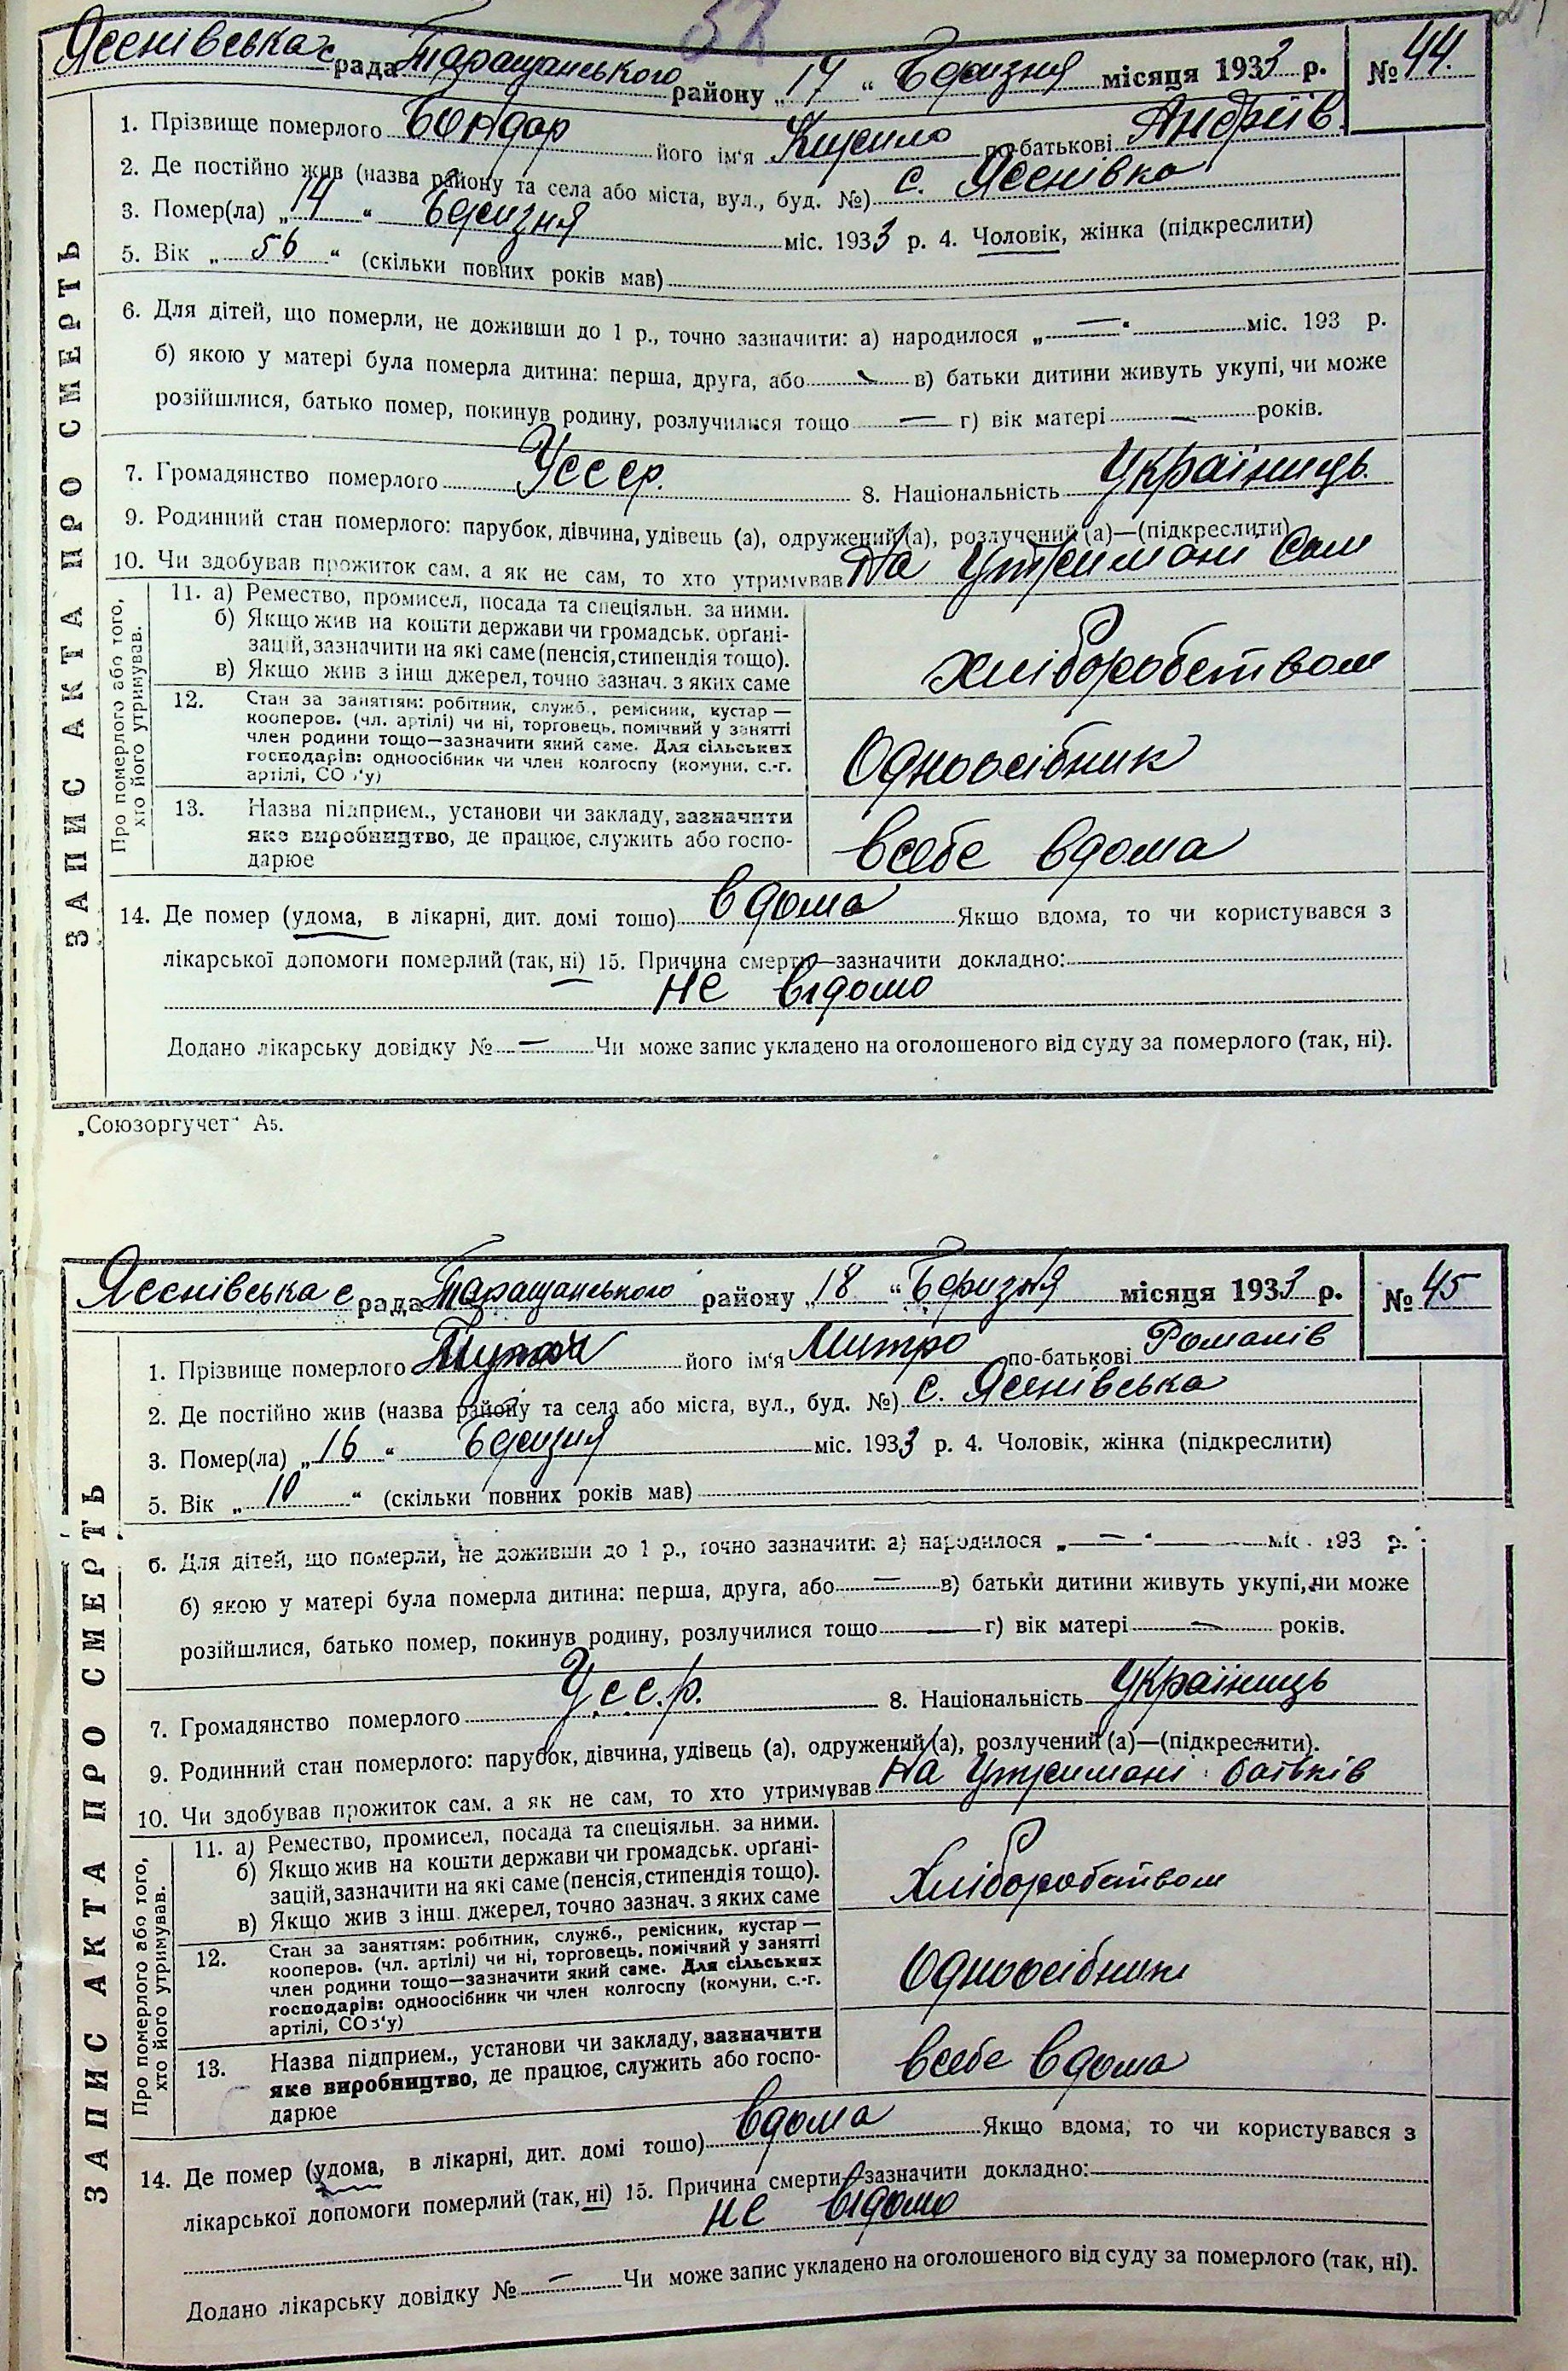 52
Ясенівська с рада Таращанського району „ 14 “ Березня місяця 1933 р. № 44.
1. Прізвище померлого Бондар його ім'я Кирило по-батькові Андріїв.
2. Де постійно жив (назва району та села або міста, вул., буд. №) с. Ясенівка
3. Помер(ла) „ 14 “ Березня міс. 1933 р. 4. Чоловік, жінка (підкреслити)
5. Вік „ 56 “ (скільки повних років мав)
6. Для дітей, що померли, не доживши до 1 р., точно зазначити: а) народилося „ — “ міс. 193 р.
б) якою у матері була померла дитина: перша, друга, або — в) батьки дитини живуть укупі, чи може
розійшлися, батько помер, покинув родину, розлучилися тощо — г) вік матері — років.
7. Громадянство померлого Усср. 8. Національність Українець.
9. Родинний стан померлого: парубок, дівчина, удівець (а), одружений (а), розлучений (а)—(підкреслити)
10. Чи здобував прожиток сам, а як не сам, то хто утримував На утримані сам
Про померлого або того, хто його утримував.
11. а) Ремество, промисел, посада та спеціяльн. за ними.
б) Якщо жив на кошти держави чи громадськ. орґані-
зацій, зазначити на які саме (пенсія, стипендія тощо).
в) Якщо жив з інш джерел, точно зазнач. з яких саме
хліборобством
12. Стан за заняттям: робітник, служб., ремісник, кустар —
кооперов. (чл. артілі) чи ні, торговець, помічний у занятті
член родини тощо—зазначити який саме. Для сільських
господарів: одноосібник чи член колгоспу (комуни, с.-г.
артілі, СОЗ'у)
Одноосібник
13. Назва підприєм., установи чи закладу, зазначити
яке виробництво, де працює, служить або госпо-
дарює
всебе вдома
14. Де помер (удома, в лікарні, дит. домі тощо) вдома Якщо вдома, то чи користувався з
лікарської допомоги померлий (так, ні) 15. Причина смерти—зазначити докладно:
не відомо
Додано лікарську довідку № — Чи може запис укладено на оголошеного від суду за померлого (так, ні).
ЗАПИС АКТА ПРО СМЕРТЬ
„Союзоргучет“ А5.
Ясенівська с рада Таращанського району „ 18 “ Березня місяця 1933 р. № 45
1. Прізвище померлого його ім'я Митро по-батькові Романів
2. Де постійно жив (назва району та села або міста, вул., буд. №) с. Ясенівська
3. Помер(ла) „ 16 “ Березня міс. 1933 р. 4. Чоловік, жінка (підкреслити)
5. Вік „ 10 “ (скільки повних років мав)
6. Для дітей, що померли, не доживши до 1 р., точно зазначити: а) народилося „ — “ — міс. 193 р.
б) якою у матері була померла дитина: перша, друга, або — в) батьки дитини живуть укупі, чи може
розійшлися, батько помер, покинув родину, розлучилися тощо — г) вік матері — років.
7. Громадянство померлого У.с.с.р. 8. Національність Українець
9. Родинний стан померлого: парубок, дівчина, удівець (а), одружений (а), розлучений (а)—(підкреслити).
10. Чи здобував прожиток сам, а як не сам, то хто утримував На утримані батьків
Про померлого або того, хто його утримував.
11. а) Ремество, промисел, посада та спеціяльн. за ними.
б) Якщо жив на кошти держави чи громадськ. орґані-
зацій, зазначити на які саме (пенсія, стипендія тощо).
в) Якщо жив з інш. джерел, точно зазнач. з яких саме
Хліборобством
12. Стан за заняттям: робітник, служб., ремісник, кустар —
кооперов. (чл. артілі) чи ні, торговець, помічний у занятті
член родини тощо—зазначити який саме. Для сільських
господарів: одноосібник чи член колгоспу (комуни, с.-г.
артілі, СОЗ'у)
Одноосібник
13. Назва підприєм., установи чи закладу, зазначити
яке виробництво, де працює, служить або госпо-
дарює
всебе вдома
14. Де помер (удома, в лікарні, дит. домі тощо) вдома Якщо вдома, то чи користувався з
лікарської допомоги померлий (так, ні) 15. Причина смерти—зазначити докладно:
не відомо
Додано лікарську довідку № — Чи може запис укладено на оголошеного від суду за померлого (так, ні).
ЗАПИС АКТА ПРО СМЕРТЬ